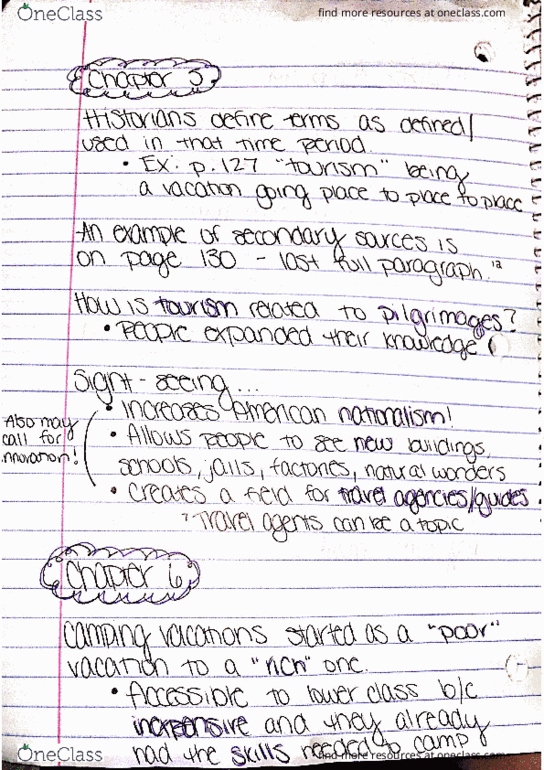 OneClass
find more resources at oneclass.com
Chapter 5
Historians define terms as defined/
used in that time period.
• Ex: p. 127 "tourism" being
a vacation going place to place to place
An example of secondary sources is
on page 130 - last full paragraph.
How is tourism related to pilgrimages?
• People expanded their knowledge
Sight-seeing...
• Increases American nationalism!
Also may
call for
innovation!
• Allows people to see new buildings,
schools, jails, factories, natural wonders
• Creates a field for travel agencies/guides
Travel agents can be a topic
Chapter 6
Camping vacations started as a "poor"
vacation to a "rich" one.
• Accessible to lower class b/c
inexpensive and they already
had the skills needed to camp
OneClass
find more resources at oneclass.com